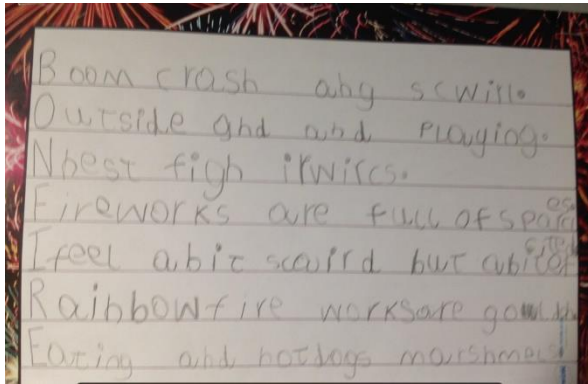 Boom crash ahg scwill.
Outside ghd ahd Playing.
Nhest figh irwircs.
Fireworks are full of sparc
I feel a bit scaird but a bit of
Raihbow fire works are
Eating ahd hotdogs marshmals